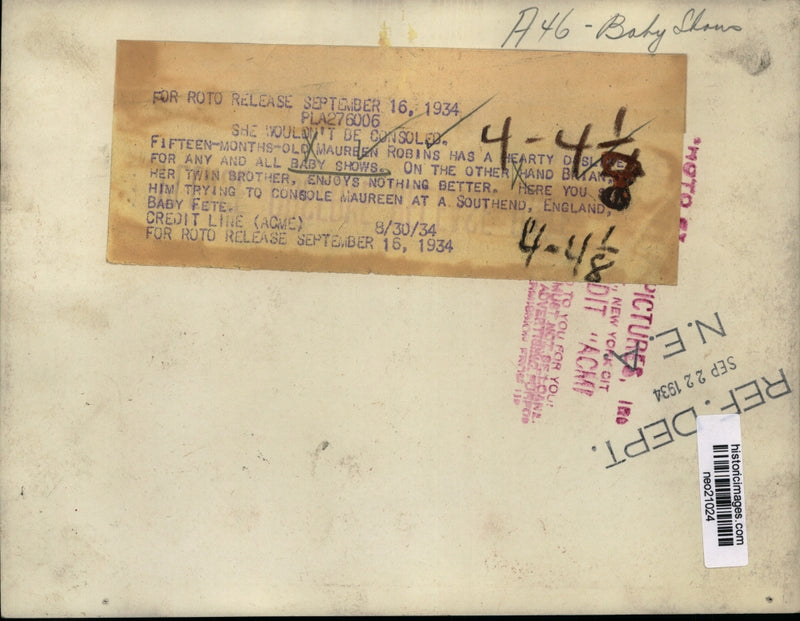 A46 - Baby Shows
FOR ROTO RELEASE SEPTEMBER 16, 1934
PLA276006
SHE WOULDN'T BE CONSOLED.
FIFTEEN-MONTHS-OLD MAUREEN ROBINS HAS A HEARTY DISLIKE
FOR ANY AND ALL BABY SHOWS. ON THE OTHER HAND BRIAN,
HER TWIN BROTHER, ENJOYS NOTHING BETTER. HERE YOU S
HIM TRYING TO CONSOLE MAUREEN AT A SOUTHEND, ENGLAND,
BABY FETE.
CREDIT LINE (ACME) 8/30/34
FOR ROTO RELEASE SEPTEMBER 16, 1934
4-4 1/8
4-4 1/8
PICTURES, INC
, NEW YORK CIT
DIT "ACME
TO YOU FOR YOU
MUST NOT BE LOANE
ADVERTISING PURPOS
N.E.A.
SEP 22 1934
REF. DEPT.
historicimages.com
neo21024